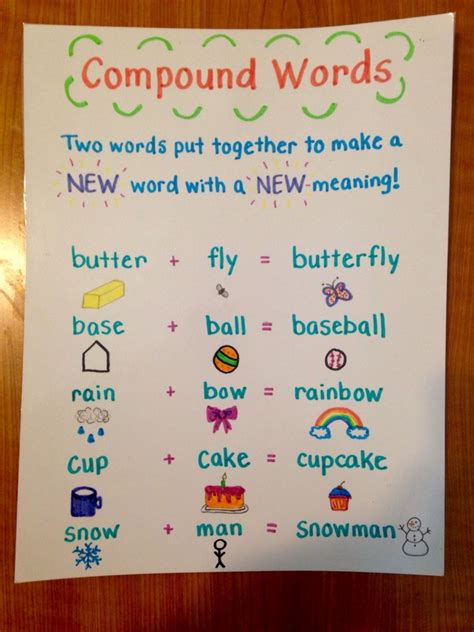 Compound Words
Two words put together to make a
NEW word with a NEW meaning!
butter + fly = butterfly
base + ball = baseball
rain + bow = rainbow
cup + cake = cupcake
snow + man = snowman